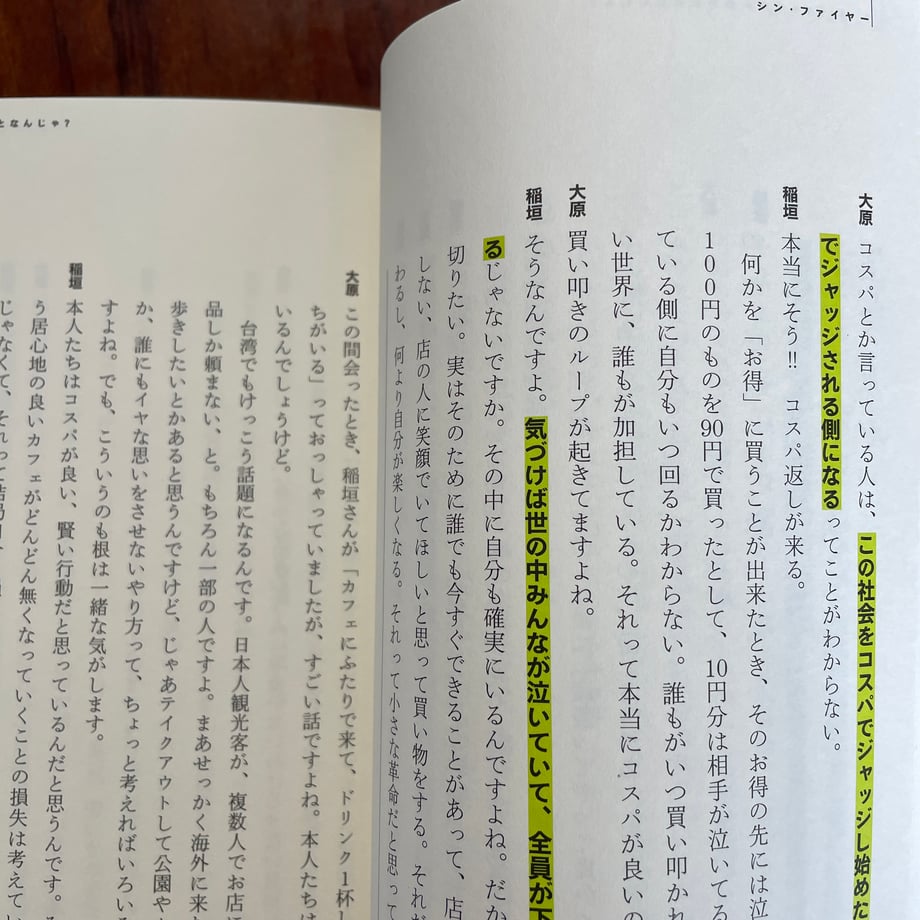 シン・ファイヤー
大原 コスパとか言っている人は、この社会をコスパでジャッジし始めた
でジャッジされる側になるってことがわからない。
稲垣 本当にそう!! コスパ返しが来る。
何かを「お得」に買うことが出来たとき、そのお得の先には泣
100円のものを90円で買ったとして、10円分は相手が泣いてる
ている側に自分もいつ回るかわからない。誰もがいつ買い叩かれ
い世界に、誰もが加担している。それって本当にコスパが良いの
大原 買い叩きのループが起きてますよね。
稲垣 そうなんですよ。気づけば世の中みんなが泣いていて、全員が下
るじゃないですか。その中に自分も確実にいるんですよね。だか
切りたい。実はそのために誰でも今すぐできることがあって、店
しない、店の人に笑顔でいてほしいと思って買い物をする。それだ
わるし、何より自分が楽しくなる。それって小さな革命だと思って
となんじゃ?
大原 この間会ったとき、稲垣さんが「カフェにふたりで来て、ドリンク1杯し
ちがいる」っておっしゃっていましたが、すごい話ですよね。本人たちは
いるんでしょうけど。
台湾でもけっこう話題になるんです。日本人観光客が、複数人でお店に
品しか頼まない、と。もちろん一部の人ですよ。まあせっかく海外に来
歩きしたいとかあると思うんですけど、じゃあテイクアウトして公園や
か、誰にもイヤな思いをさせないやり方って、ちょっと考えればいろい
すよね。でも、こういうのも根は一緒な気がします。
稲垣 本人たちはコスパが良い、賢い行動だと思っているんだと思うんです。
う居心地の良いカフェがどんどん無くなっていくことの損失は考えて
じゃなくて、それって結局